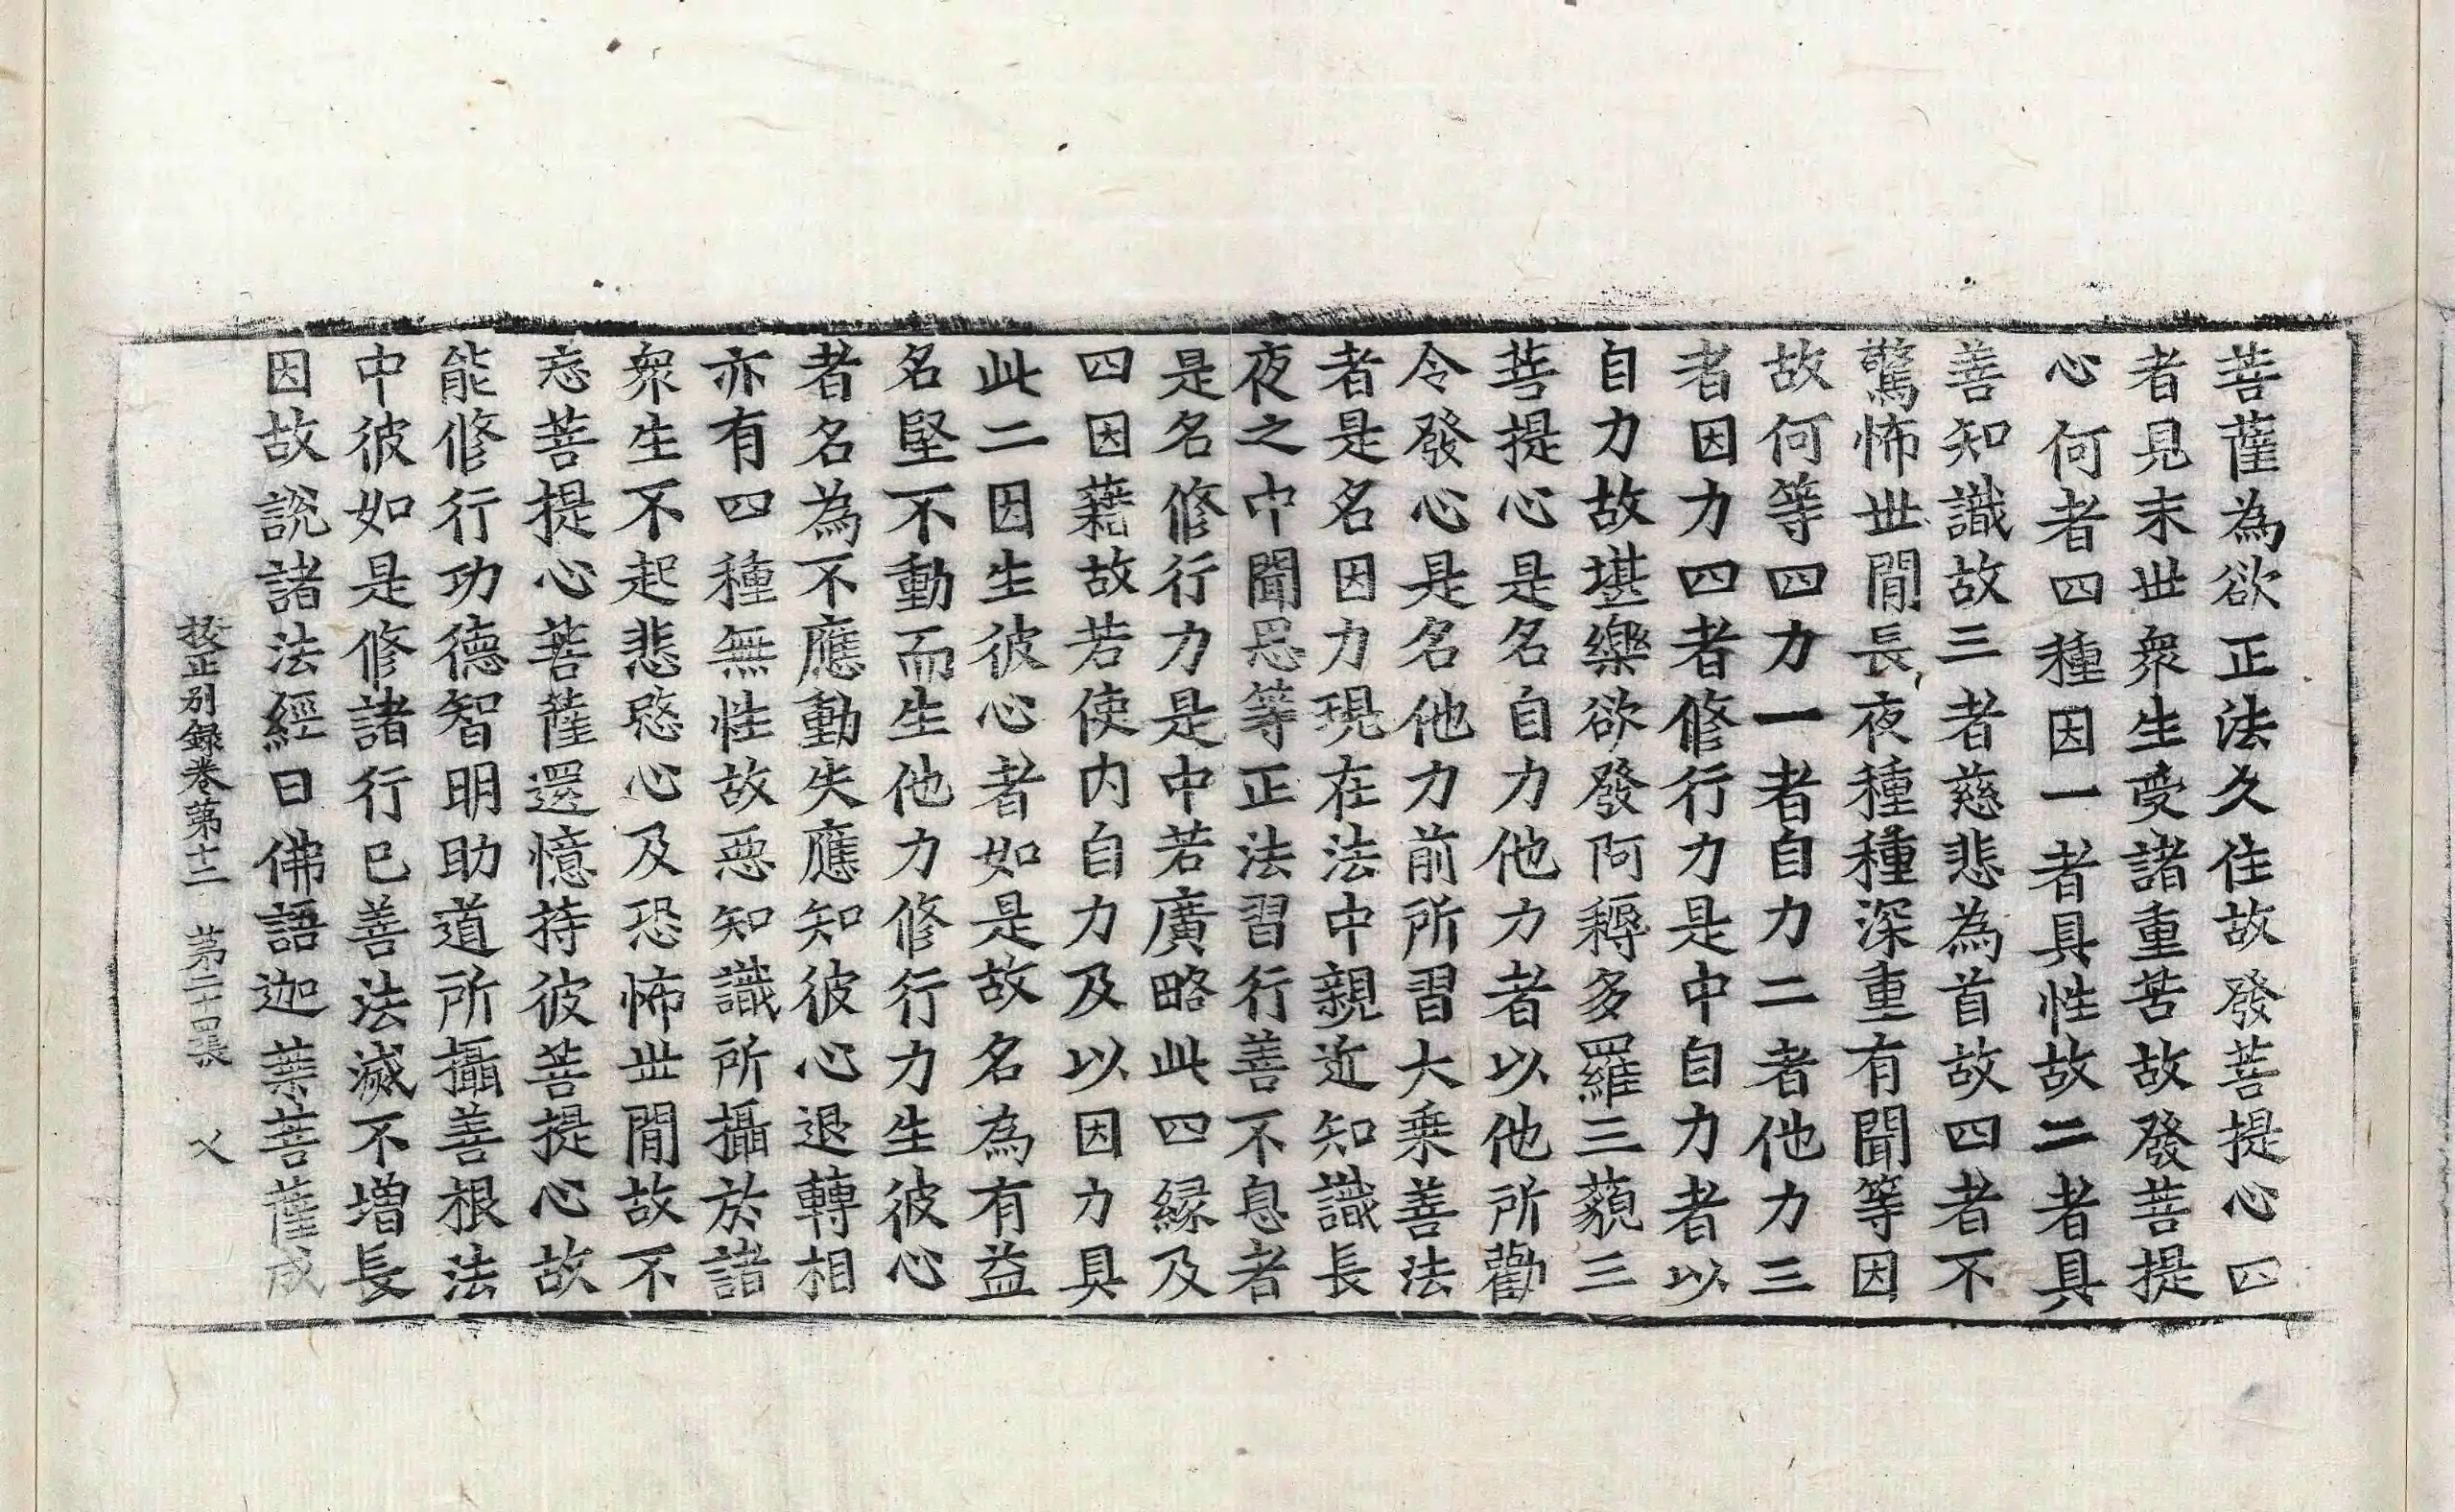 菩薩為欲正法久住故發菩提心四
者見末世衆生受諸重苦故發菩提
心何者四種因一者具性故二者具
善知識故三者慈悲為首故四者不
驚怖世閒長夜種種深重有聞等因
故何等四力一者自力二者他力三
者因力四者修行力是中自力者以
自力故堪樂欲發阿耨多羅三藐三
菩提心是名自力他力者以他所勸
令發心是名他力前所習大乗善法
者是名因力現在法中親近知識長
夜之中聞思等正法習行善不息者
是名修行力是中若廣略此四縁及
四因藉故若使内自力及以因力具
此二因生彼心者如是故名為有益
名堅不動而生他力修行力生彼心
者名為不應動失應知彼心退轉相
亦有四種無性故惡知識所攝於諸
衆生不起悲愍心及恐怖世閒故不
忘菩提心菩薩還憶持彼菩提心故
能修行功德智明助道所攝善根法
中彼如是修諸行已善法滅不増長
因故説諸法經曰佛語迦葉菩薩成
挍正别録卷苐十二 苐二十四張 乂